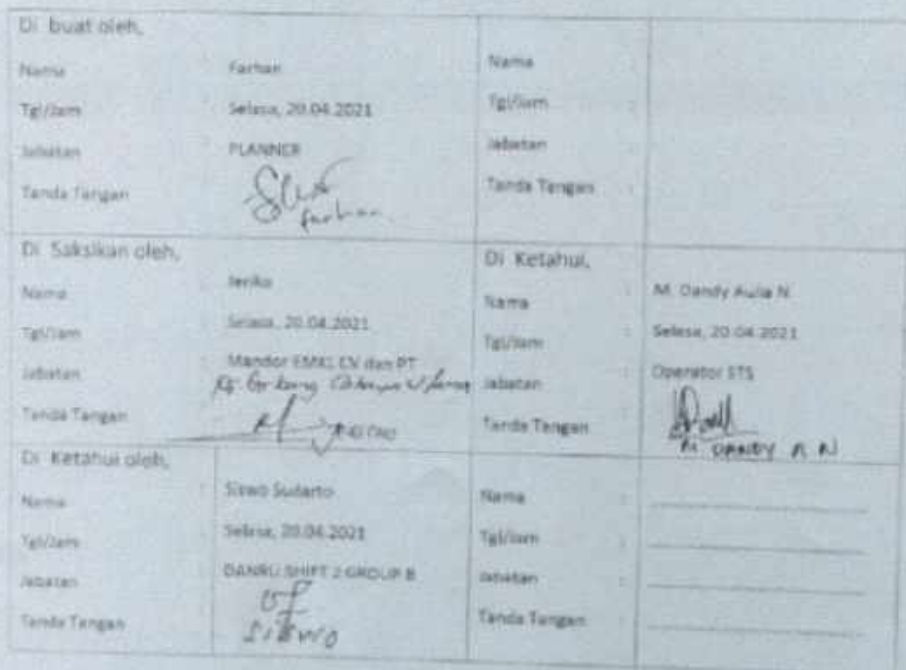 Di buat oleh,
Nama : Farhan
Tgl/Jam : Selasa, 20.04.2021
Jabatan : PLANNER
Tanda Tangan
Farhan
Nama :
Tgl/Jam :
Jabatan :
Tanda Tangan :
Di Saksikan oleh,
Nama : Jeriko
Tgl/Jam : Selasa, 20.04.2021
Jabatan : Mandor EMKL CV dan PT
Tanda Tangan
Di Ketahui,
Nama : M. Dandy Aulia N
Tgl/Jam : Selasa, 20.04.2021
Jabatan : Operator STS
Tanda Tangan :
M DANDY A N
Di Ketahui oleh,
Nama : Siswo Sudarto
Tgl/Jam : Selasa, 20.04.2021
Jabatan : DANRU SHIFT 2 GROUP B
Tanda Tangan
SISWO
Nama :
Tgl/Jam :
Jabatan :
Tanda Tangan :